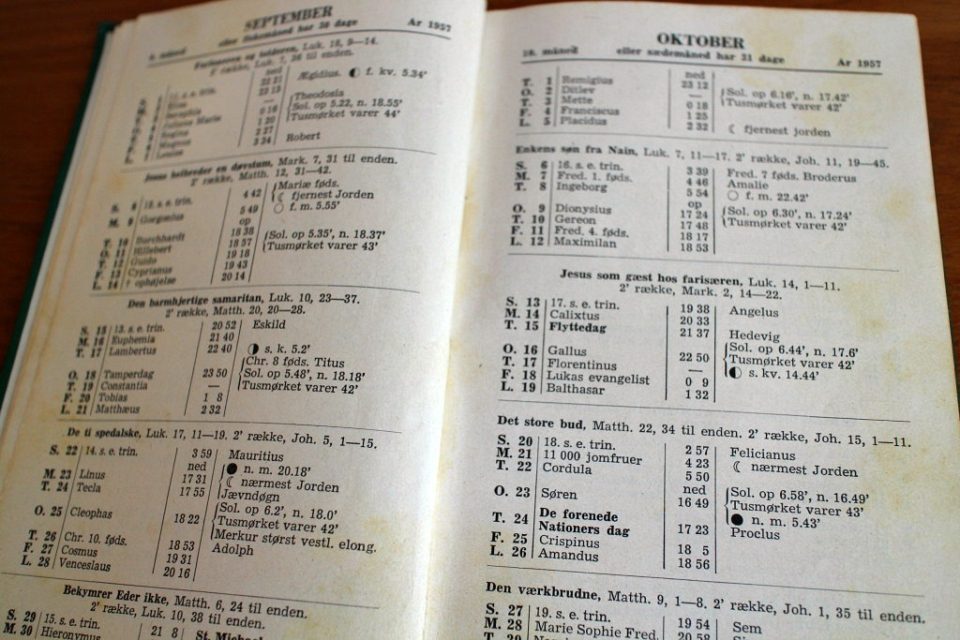 SEPTEMBER
9. måned eller fiskemåned har 30 dage År 1957
Farisæeren og tolderen, Luk. 18, 9—14.
2' række, Luk. 7, 36 til enden.
Ægidius. f. kv. 5.34'
Theodosia
Sol. op 5.22, n. 18.55'
Tusmørket varer 44'
Robert
Jesus helbreder en døvstum, Mark. 7, 31 til enden.
2' række, Matth. 12, 31—42.
S. 8 12. s. e. trin. 4 42 Mariæ føds.
fjernest Jorden
M. 9 Gorgonius 5 49 f. m. 5.55'
op
T. 10 Burchhardt 18 38 Sol. op 5.35', n. 18.37'
O. 11 Hillebert 18 57 Tusmørket varer 43'
T. 12 Guido 19 18
F. 13 Cyprianus 19 43
L. 14 † ophøjelse 20 14
Den barmhjertige samaritan, Luk. 10, 23—37.
2' række, Matth. 20, 20—28.
S. 15 13. s. e. trin. 20 52 Eskild
M. 16 Euphemia 21 40
T. 17 Lambertus 22 40 s. k. 5.2'
Chr. 8 føds. Titus
O. 18 Tamperdag 23 50 Sol. op 5.48', n. 18.18'
T. 19 Constantia — Tusmørket varer 42'
F. 20 Tobias 1 8
L. 21 Matthæus 2 32
De ti spedalske, Luk. 17, 11—19. 2' række, Joh. 5, 1—15.
S. 22 14. s. e. trin. 3 59 Mauritius
ned n. m. 20.18'
M. 23 Linus 17 31 nærmest Jorden
T. 24 Tecla 17 55 Jævndøgn
Sol. op 6.2', n. 18.0'
O. 25 Cleophas 18 22 Tusmørket varer 42'
Merkur størst vestl. elong.
T. 26 Chr. 10. føds. 18 53 Adolph
F. 27 Cosmus 19 31
L. 28 Venceslaus 20 16
Bekymrer Eder ikke, Matth. 6, 24 til enden.
2' række, Luk. 10, 38 til enden.
S. 29 15. s. e. trin.
M. 30 Hieronymus 21 8 St. Michael
OKTOBER
10. måned eller sædemåned har 31 dage År 1957
ned
T. 1 Remigius 23 12 Sol op 6.16', n. 17.42'
O. 2 Ditlev — Tusmørket varer 42'
T. 3 Mette 0 18
F. 4 Franciscus 1 25
L. 5 Placidus 2 32 fjernest jorden
Enkens søn fra Nain, Luk. 7, 11—17. 2' række, Joh. 11, 19—45.
S. 6 16. s. e. trin. 3 39 Fred. 7 føds. Broderus
M. 7 Fred. 1. føds. 4 46 Amalie
T. 8 Ingeborg 5 54 f. m. 22.42'
op
O. 9 Dionysius 17 24 Sol op 6.30', n. 17.24'
T. 10 Gereon 17 48 Tusmørket varer 42'
F. 11 Fred. 4. føds. 18 17
L. 12 Maximilan 18 53
Jesus som gæst hos farisæren, Luk. 14, 1—11.
2' række, Mark. 2, 14—22.
S. 13 17. s. e. trin. 19 38 Angelus
M. 14 Calixtus 20 33
T. 15 Flyttedag 21 37 Hedevig
O. 16 Gallus 22 50 Sol op 6.44', n. 17.6'
T. 17 Florentinus — Tusmørket varer 42'
F. 18 Lukas evangelist 0 9 s. kv. 14.44'
L. 19 Balthasar 1 32
Det store bud, Matth. 22, 34 til enden. 2' række, Joh. 15, 1—11.
S. 20 18. s. e. trin. 2 57 Felicianus
M. 21 11 000 jomfruer 4 23 nærmest Jorden
T. 22 Cordula 5 50
ned Sol op 6.58', n. 16.49'
O. 23 Søren 16 49 Tusmørket varer 43'
n. m. 5.43'
T. 24 De forenede Nationers dag 17 23 Proclus
F. 25 Crispinus 18 5
L. 26 Amandus 18 56
Den værkbrudne, Matth. 9, 1—8. 2' række, Joh. 1, 35 til enden.
S. 27 19. s. e. trin. 19 54 Sem
M. 28 Marie Sophie Fred. 20 58